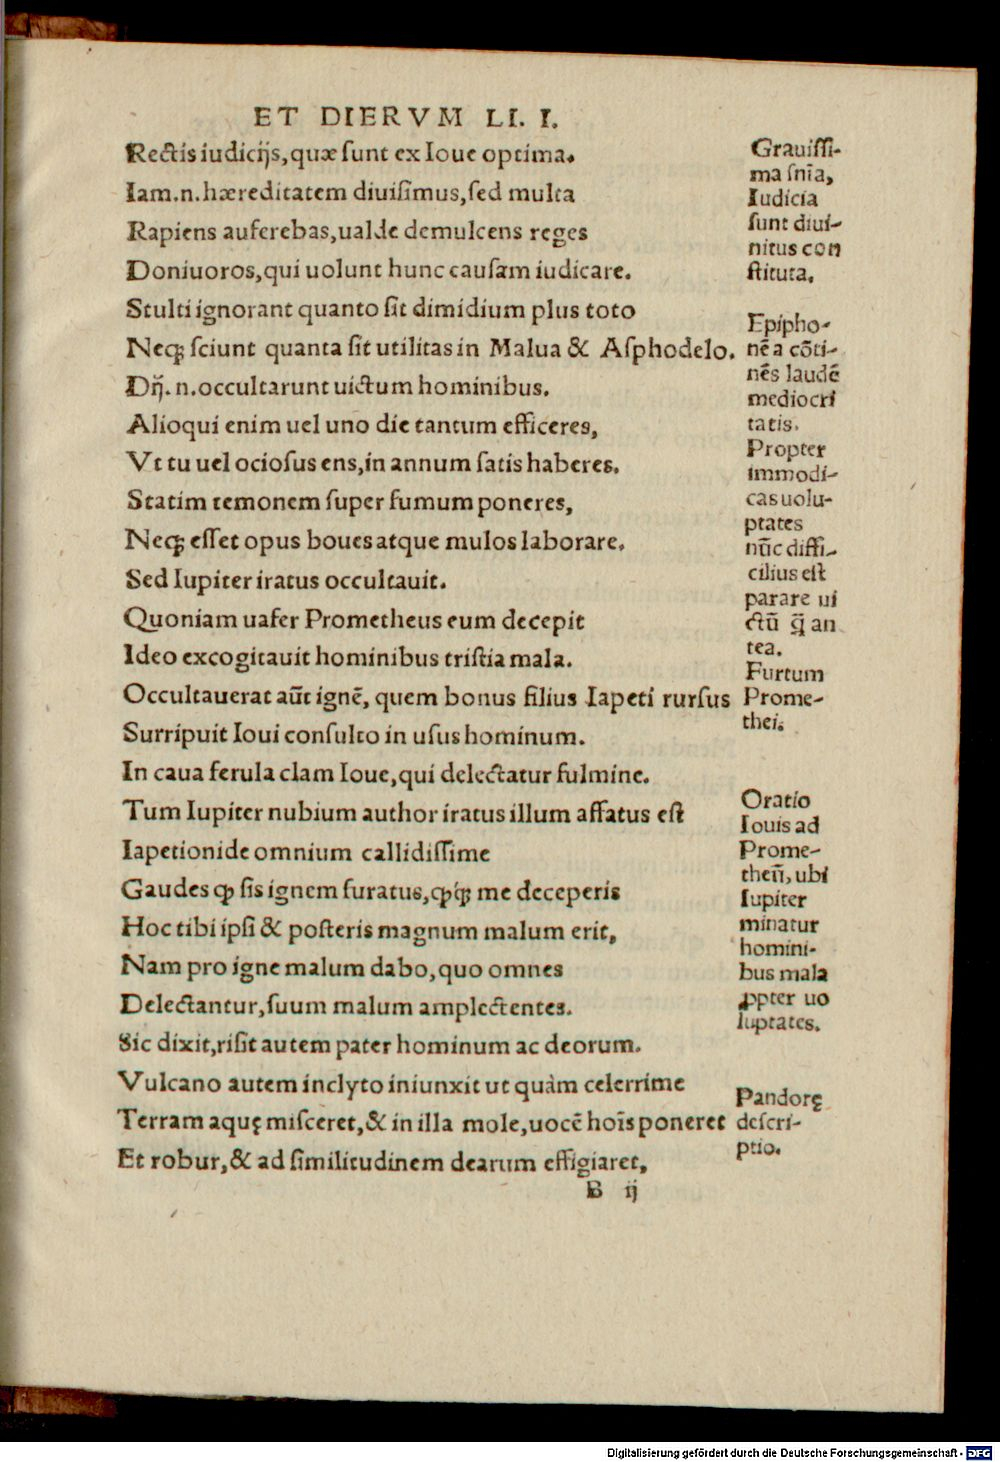 ET DIERVM LI. I.
Rectis iudicijs, quæ sunt ex Ioue optima.
Iam.n.hæreditatem diuisimus, sed multa
Rapiens auferebas, ualde demulcens reges
Doniuoros, qui uolunt hunc causam iudicare.
Stulti ignorant quanto sit dimidium plus toto
Neqꝫ sciunt quanta sit utilitas in Malua & Asphodelo.
Dij̃.n.occultarunt uictum hominibus.
Alioqui enim uel uno die tantum efficeres,
Vt tu uel ociosus ens, in annum satis haberes.
Statim temonem super fumum poneres,
Neqꝫ esset opus boues atque mulos laborare.
Sed Iupiter iratus occultauit.
Quoniam uafer Prometheus eum decepit
Ideo excogitauit hominibus tristia mala.
Occultauerat aũt ignẽ, quem bonus filius Iapeti rursus
Surripuit Ioui consulto in usus hominum.
In caua ferula clam Ioue, qui delectatur fulmine.
Tum Iupiter nubium author iratus illum affatus est
Iapetionide omnium callidissime
Gaudes ꝙ sis ignem furatus, ꝙqꝫ me deceperis
Hoc tibi ipsi & posteris magnum malum erit,
Nam pro igne malum dabo, quo omnes
Delectantur, suum malum amplectentes.
Sic dixit, risit autem pater hominum ac deorum.
Vulcano autem inclyto iniunxit ut quàm celerrime
Terram aquę misceret, & in illa mole, uocẽ hoĩs poneret
Et robur, & ad similitudinem dearum effigiaret,
B ij
Grauissi-
ma snĩa,
Iudicia
sunt diui-
nitus con
stituta.
Epipho-
nẽa cõti-
nẽs laudẽ
mediocri
tatis.
Propter
immodi-
cas uolu-
ptates
nũc diffi-
cilius est
parare ui
ctũ q̃ an
tea.
Furtum
Prome-
thei.
Oratio
Iouis ad
Prome-
theũ, ubi
Iupiter
minatur
homini-
bus mala
ꝓpter uo
luptates.
Pandorę
descri-
ptio.
Digitalisierung gefördert durch die Deutsche Forschungsgemeinschaft - DFG